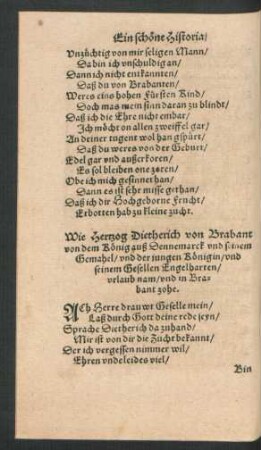 Ein schöne Historia/
Vnzüchtig von mir seligen Mann/
Da bin ich vnschuldig an/
Dann ich nicht entkannten/
Daß du von Brabanten/
Weres eins hohen Fürsten Kind/
Doch mas mein sinn daran zu blindt/
Daß ich die Ehre nicht enbar/
Ich möcht on allen zweiffel gar/
An deiner tugent wol han gspürt/
Daß du weres von der Geburt/
Edel gar vnd außerkoren/
Es sol bleiben one zoren/
Obe ich mich gesinnet han/
Dann es ist sehr misse gethan/
Daß ich dir Hochgeborne Frucht/
Erbotten hab zu kleine zucht.
Wie Hertzog Dietherich von Brabant
von dem König auß Dennemarck vnd seinem
Gemahel/ vnd der jungen Königin/ vnd
seinem Gesellen Engelharten/
vrlaub nam/ vnd in Bra-
bant zohe.
ACh Herre drauwt Geselle mein/
Laß durch Gott deine rede seyn/
Sprache Dietherich da zuhand/
Mir ist von dir die Zucht bekannt/
Der ich vergessen nimmer wil/
Ehren vnd leides viel/
Bin